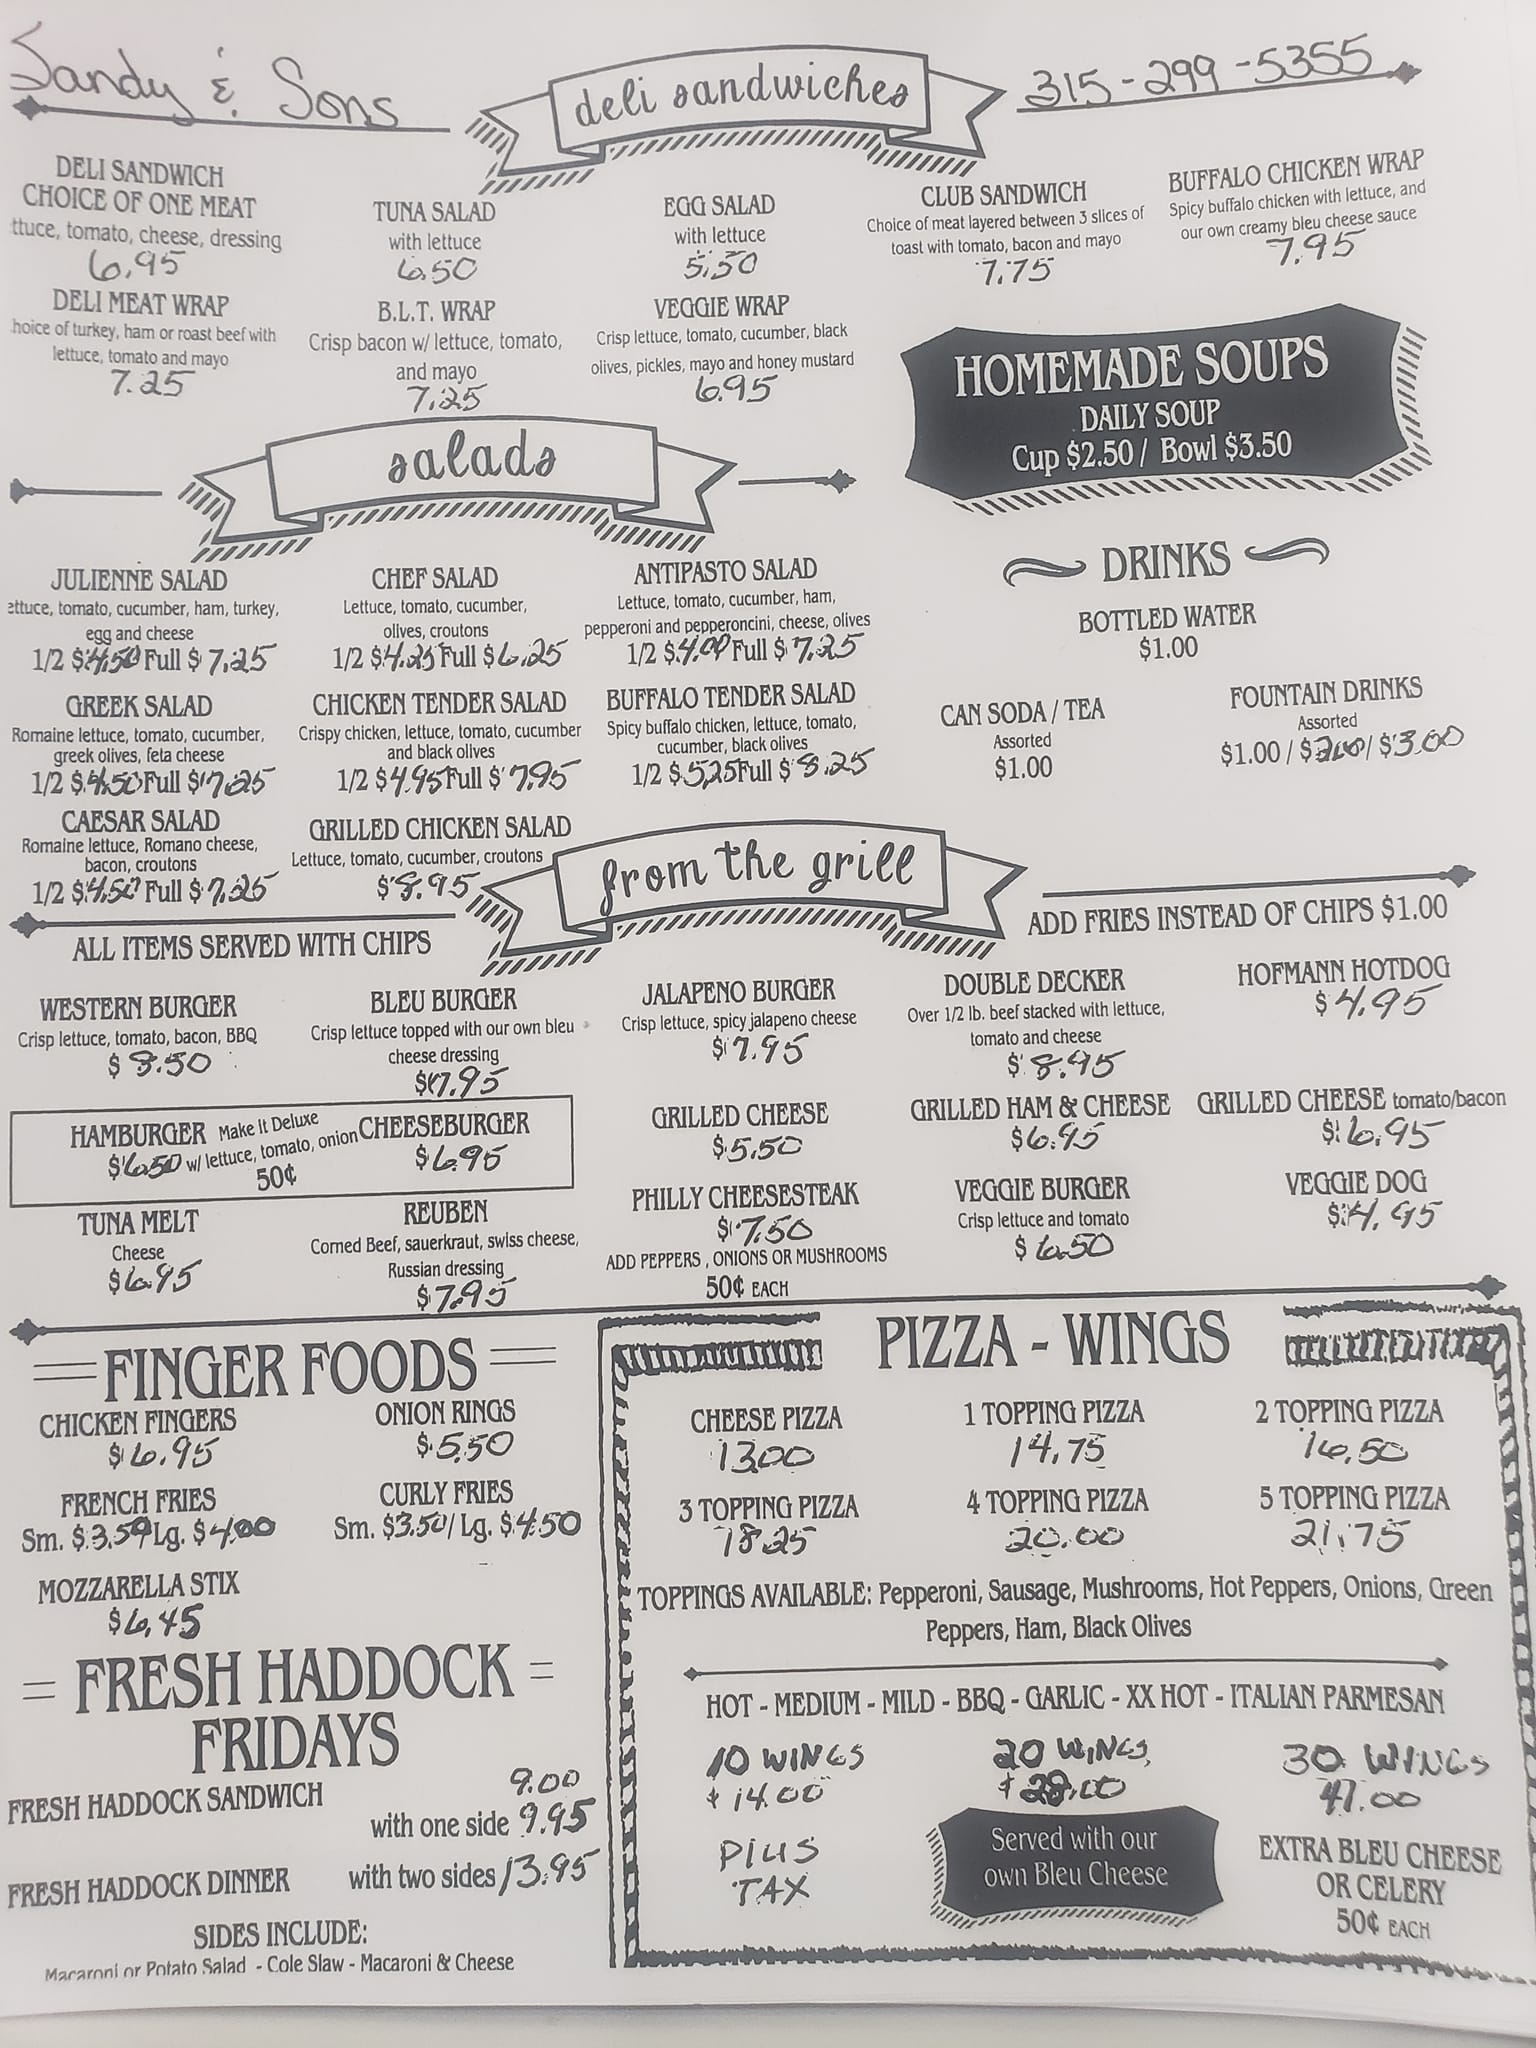 Sandy & Sons
deli sandwiches
315-299-5355
DELI SANDWICH
CHOICE OF ONE MEAT
ttuce, tomato, cheese, dressing
6.95
TUNA SALAD
with lettuce
6.50
EGG SALAD
with lettuce
5.50
CLUB SANDWICH
Choice of meat layered between 3 slices of
toast with tomato, bacon and mayo
7.75
BUFFALO CHICKEN WRAP
Spicy buffalo chicken with lettuce, and
our own creamy bleu cheese sauce
7.95
DELI MEAT WRAP
hoice of turkey, ham or roast beef with
lettuce, tomato and mayo
7.25
B.L.T. WRAP
Crisp bacon w/ lettuce, tomato,
and mayo
7.25
VEGGIE WRAP
Crisp lettuce, tomato, cucumber, black
olives, pickles, mayo and honey mustard
6.95
HOMEMADE SOUPS
DAILY SOUP
Cup $2.50 / Bowl $3.50
salads
JULIENNE SALAD
ettuce, tomato, cucumber, ham, turkey,
egg and cheese
1/2 $4.50 Full $7.25
CHEF SALAD
Lettuce, tomato, cucumber,
olives, croutons
1/2 $4.25 Full $6.25
ANTIPASTO SALAD
Lettuce, tomato, cucumber, ham,
pepperoni and pepperoncini, cheese, olives
1/2 $4.00 Full $7.25
GREEK SALAD
Romaine lettuce, tomato, cucumber,
greek olives, feta cheese
1/2 $4.50 Full $7.25
CHICKEN TENDER SALAD
Crispy chicken, lettuce, tomato, cucumber
and black olives
1/2 $4.95 Full $7.95
BUFFALO TENDER SALAD
Spicy buffalo chicken, lettuce, tomato,
cucumber, black olives
1/2 $5.25 Full $8.25
CAESAR SALAD
Romaine lettuce, Romano cheese,
bacon, croutons
1/2 $4.50 Full $7.25
GRILLED CHICKEN SALAD
Lettuce, tomato, cucumber, croutons
$8.95
DRINKS
BOTTLED WATER
$1.00
CAN SODA / TEA
Assorted
$1.00
FOUNTAIN DRINKS
Assorted
$1.00 / $2.00 / $3.00
from the grill
ALL ITEMS SERVED WITH CHIPS
ADD FRIES INSTEAD OF CHIPS $1.00
WESTERN BURGER
Crisp lettuce, tomato, bacon, BBQ
$8.50
BLEU BURGER
Crisp lettuce topped with our own bleu
cheese dressing
$7.95
JALAPENO BURGER
Crisp lettuce, spicy jalapeno cheese
$7.95
DOUBLE DECKER
Over 1/2 lb. beef stacked with lettuce,
tomato and cheese
$8.95
HOFMANN HOTDOG
$4.95
HAMBURGER
$6.50
Make It Deluxe
w/ lettuce, tomato, onion
50¢
CHEESEBURGER
$6.95
GRILLED CHEESE
$5.50
GRILLED HAM & CHEESE
$6.95
GRILLED CHEESE tomato/bacon
$6.95
TUNA MELT
Cheese
$6.95
REUBEN
Corned Beef, sauerkraut, swiss cheese,
Russian dressing
$7.95
PHILLY CHEESESTEAK
$7.50
ADD PEPPERS, ONIONS OR MUSHROOMS
50¢ EACH
VEGGIE BURGER
Crisp lettuce and tomato
$6.50
VEGGIE DOG
$4.95
FINGER FOODS
CHICKEN FINGERS
$6.95
ONION RINGS
$5.50
FRENCH FRIES
Sm. $3.50 Lg. $4.00
CURLY FRIES
Sm. $3.50/ Lg. $4.50
MOZZARELLA STIX
$6.45
FRESH HADDOCK
FRIDAYS
FRESH HADDOCK SANDWICH 9.00
with one side 9.95
FRESH HADDOCK DINNER with two sides 13.95
SIDES INCLUDE:
Macaroni or Potato Salad - Cole Slaw - Macaroni & Cheese
PIZZA - WINGS
CHEESE PIZZA
13.00
1 TOPPING PIZZA
14.75
2 TOPPING PIZZA
16.50
3 TOPPING PIZZA
18.25
4 TOPPING PIZZA
20.00
5 TOPPING PIZZA
21.75
TOPPINGS AVAILABLE: Pepperoni, Sausage, Mushrooms, Hot Peppers, Onions, Green
Peppers, Ham, Black Olives
HOT - MEDIUM - MILD - BBQ - GARLIC - XX HOT - ITALIAN PARMESAN
10 WINGS
$14.00
20 WINGS
$28.00
30 WINGS
41.00
PlUS
TAX
Served with our
own Bleu Cheese
EXTRA BLEU CHEESE
OR CELERY
50¢ EACH